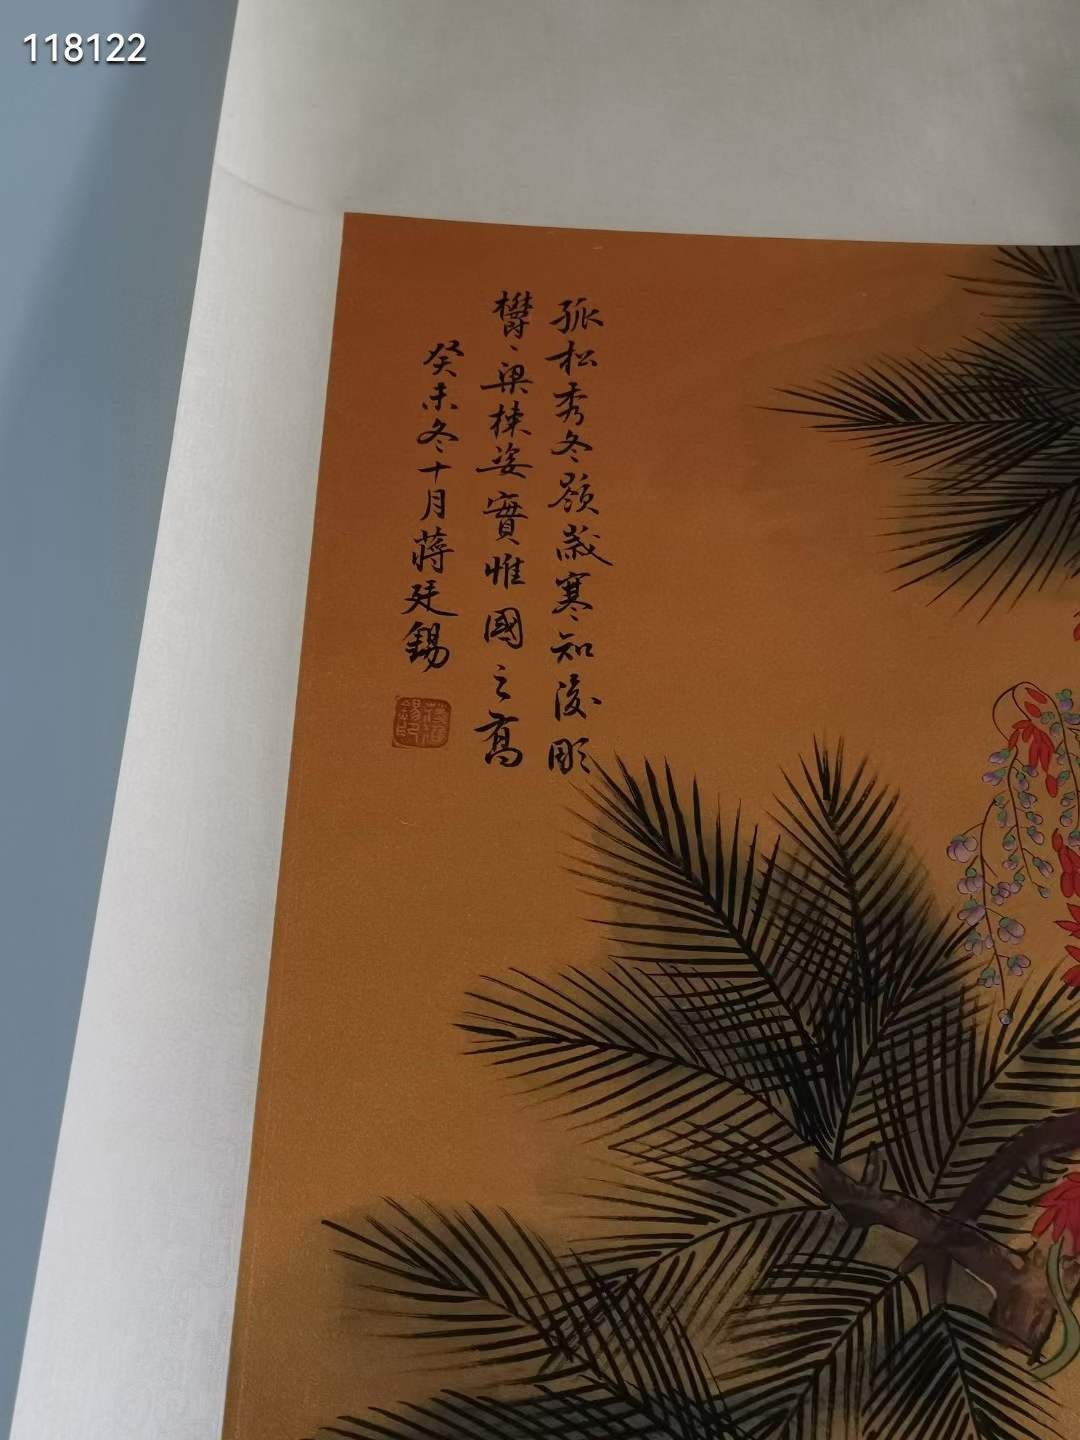 118122
孤松秀冬嶺歲寒知後彫
欝〻梁棟姿實惟國之高
癸未冬十月蔣廷錫